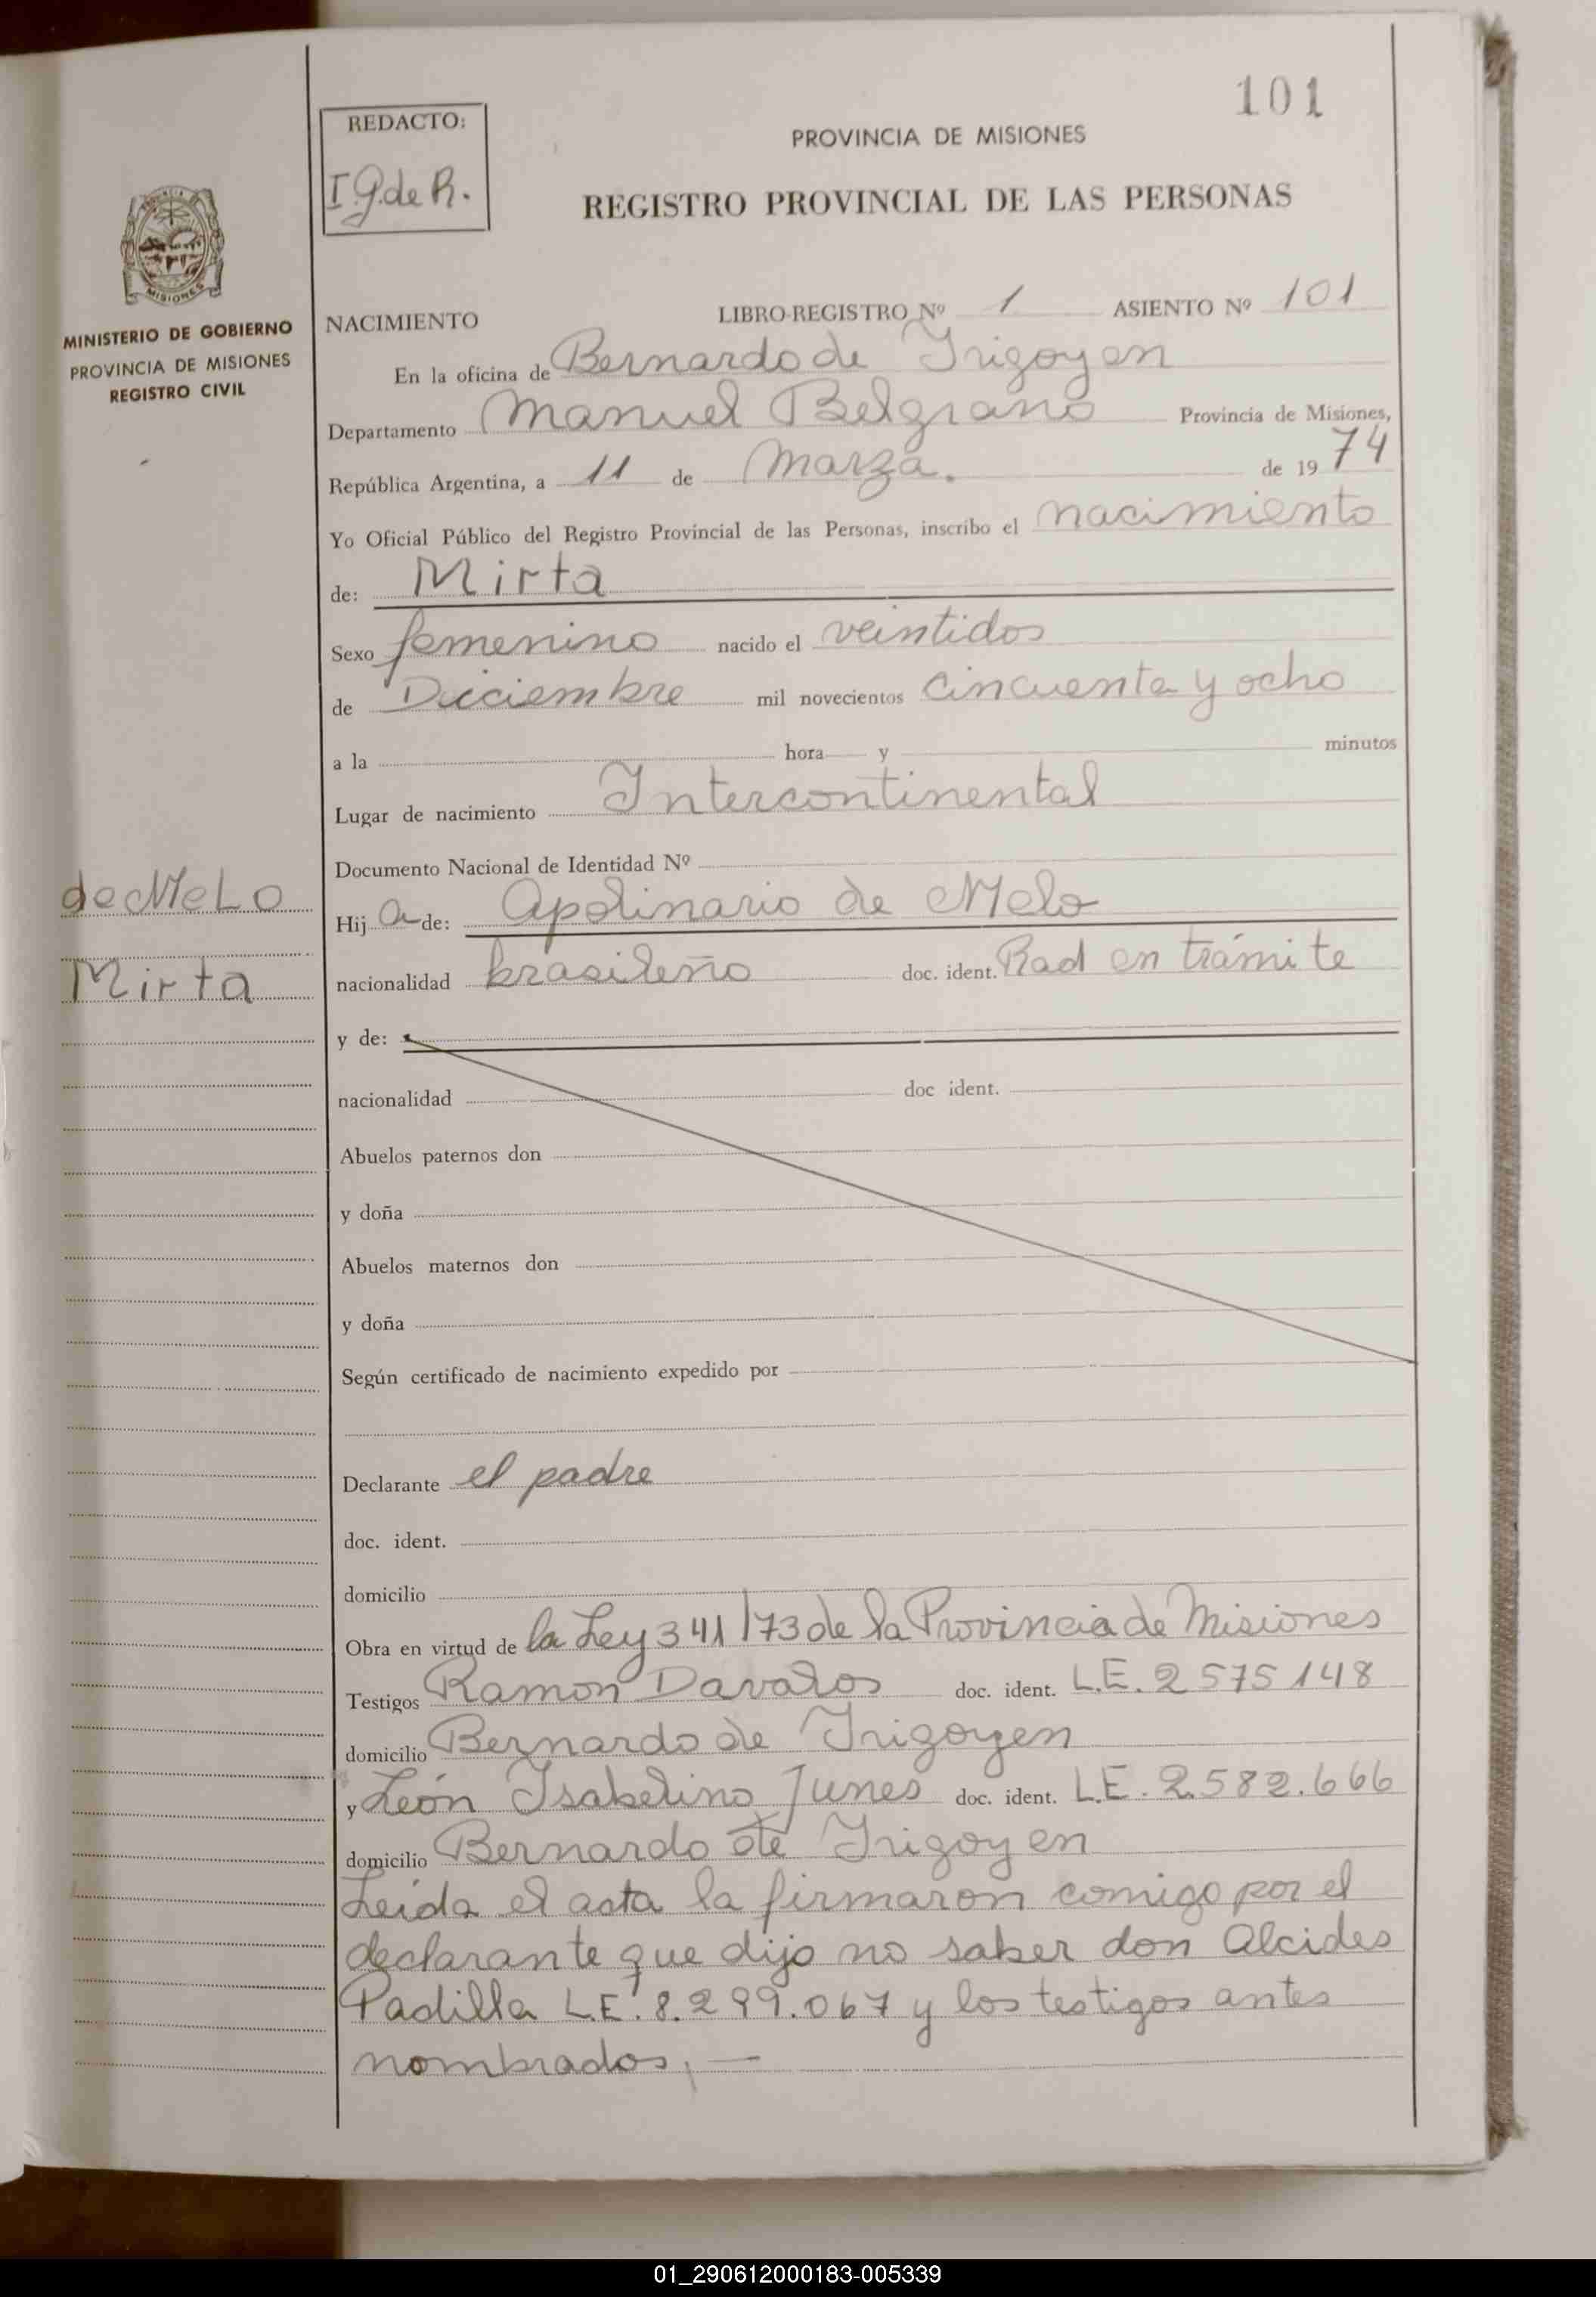 101
REDACTO:
I.G. de R.
PROVINCIA DE MISIONES
REGISTRO PROVINCIAL DE LAS PERSONAS
MISIONES
MINISTERIO DE GOBIERNO
PROVINCIA DE MISIONES
REGISTRO CIVIL
NACIMIENTO LIBRO-REGISTRO Nº 1 ASIENTO Nº 101
En la oficina de Bernardo de Irigoyen
Departamento Manuel Belgrano Provincia de Misiones,
República Argentina, a 11 de Marzo. de 1974
Yo Oficial Público del Registro Provincial de las Personas, inscribo el nacimiento
de: Mirta
Sexo femenino nacido el veintidos
de Diciembre mil novecientos cincuenta y ocho
a la hora y minutos
Lugar de nacimiento Intercontinental
Documento Nacional de Identidad Nº
de MeLo
Hij a de: Apolinario de Melo
Mirta
nacionalidad brasileño doc. ident. Rad en trámite
y de:
nacionalidad doc ident.
Abuelos paternos don
y doña
Abuelos maternos don
y doña
Según certificado de nacimiento expedido por
Declarante el padre
doc. ident.
domicilio
Obra en virtud de la Ley 341/73 de la Provincia de Misiones
Testigos Ramon Davalos doc. ident. L.E. 2575148
domicilio Bernardo de Irigoyen
y León Isabelino Junes doc. ident. L.E. 2.582.666
domicilio Bernardo de Irigoyen
Leída el acta la firmaron comigo por el
declarante que dijo no saber don Alcides
Padilla L.E. 8.299.067 y los testigos antes
nombrados,—
01_290612000183-005339